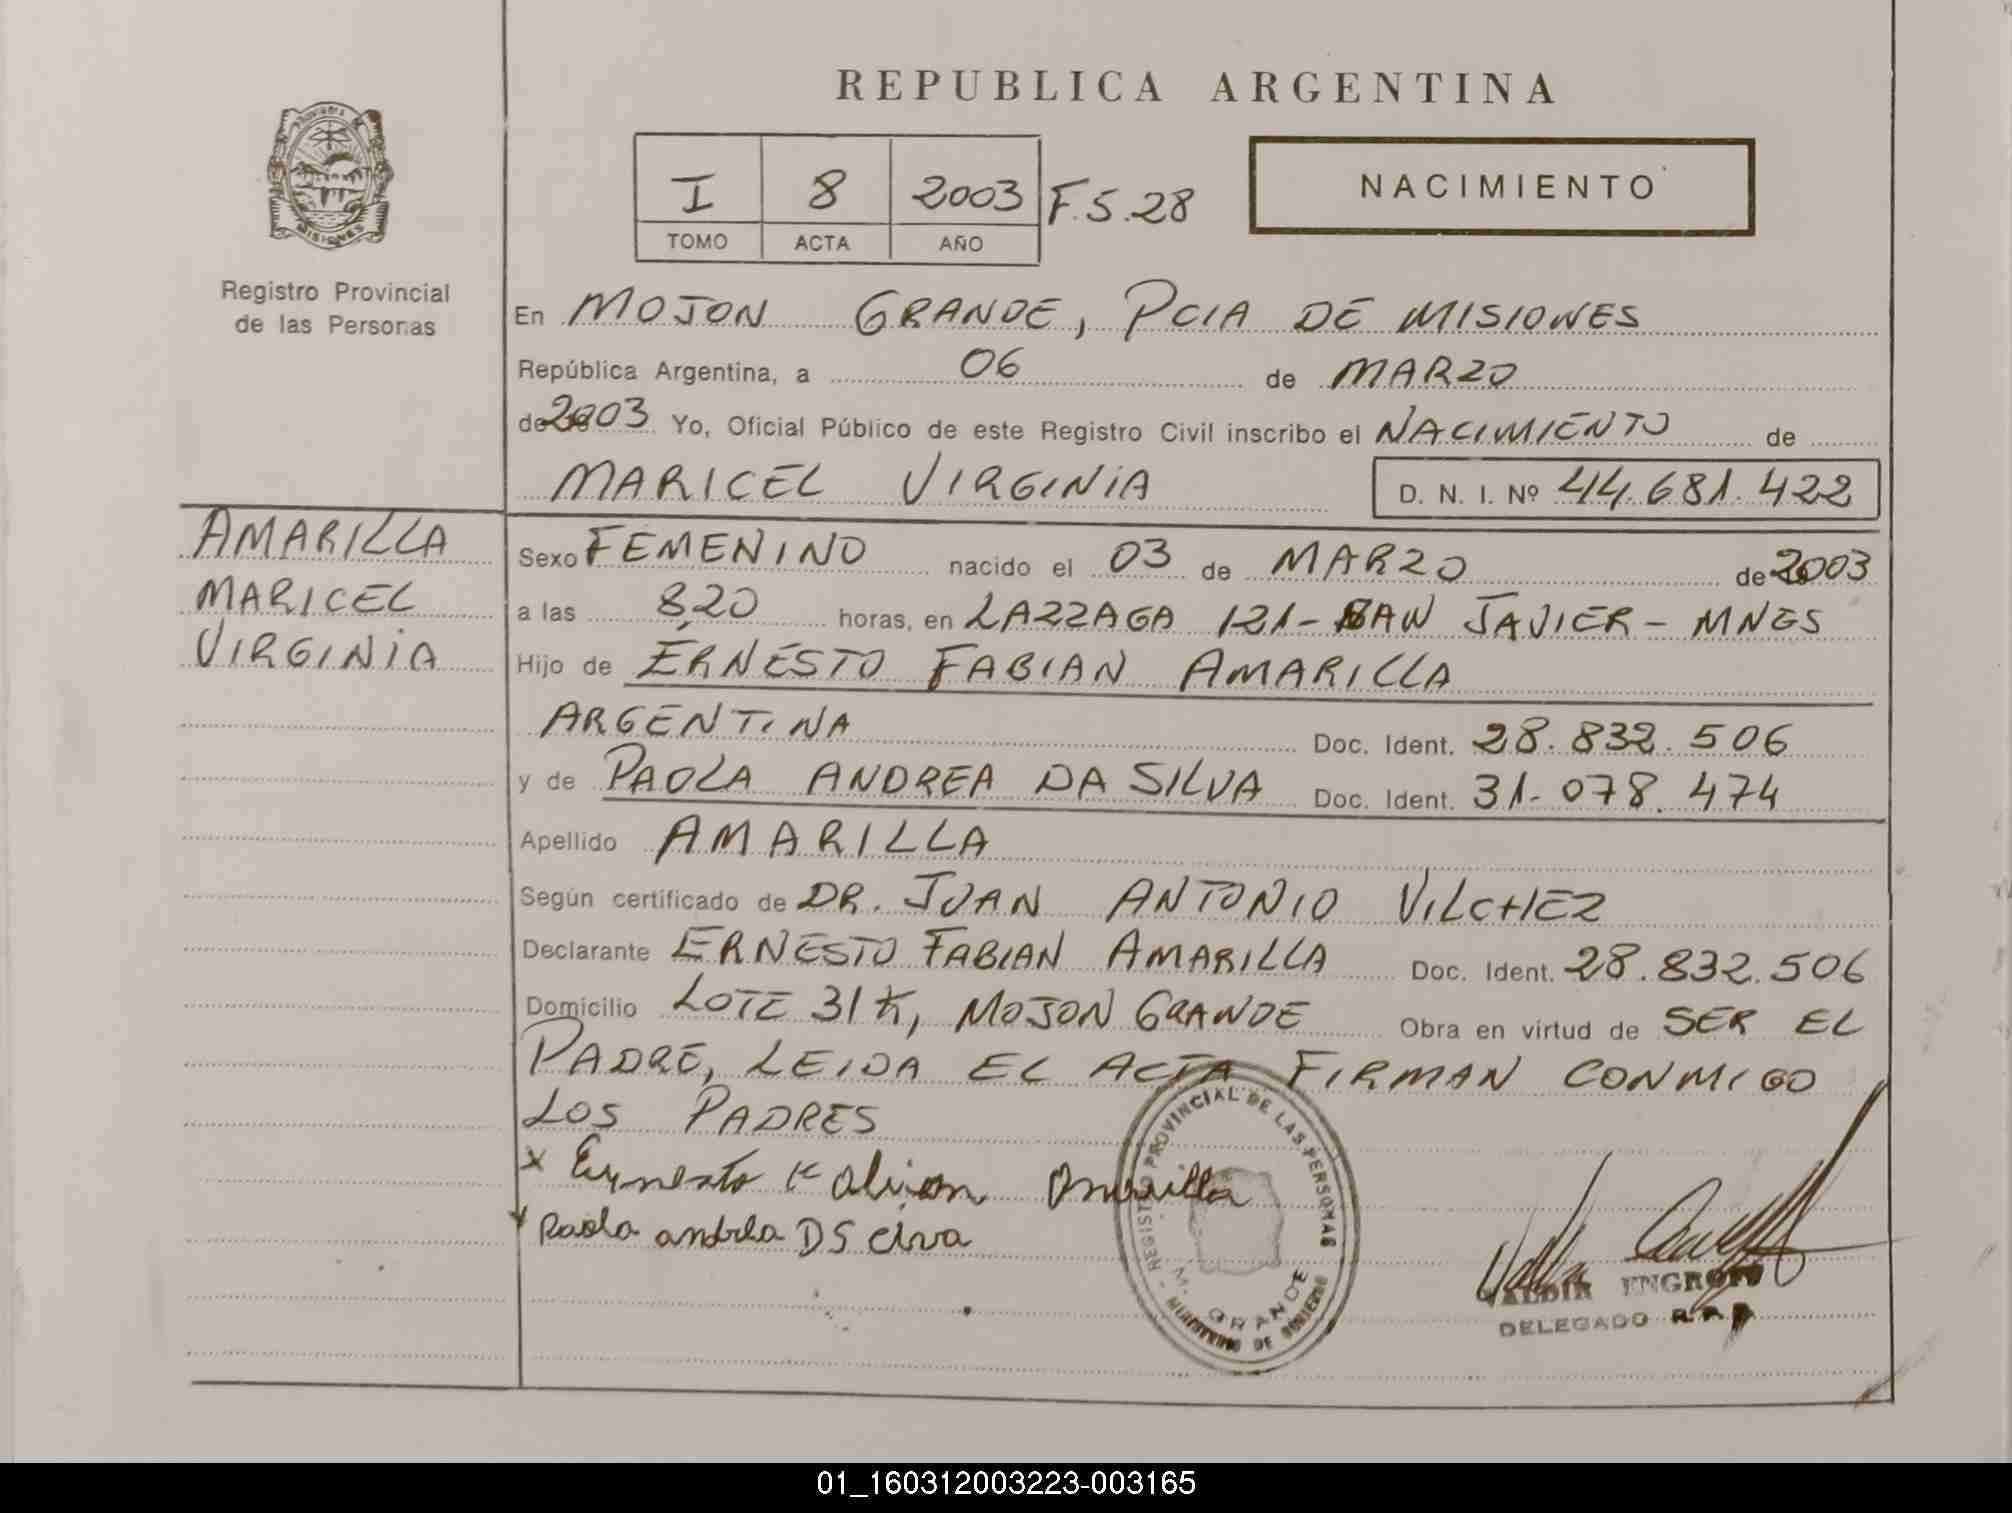 REPUBLICA ARGENTINA
PROVINCIA DE MISIONES
Registro Provincial
de las Personas
I 8 2003 F.S.28
TOMO ACTA AÑO
NACIMIENTO
En MOJON GRANDE, PCIA DE MISIONES
República Argentina, a 06 de MARZO
de 2003 Yo, Oficial Público de este Registro Civil inscribo el NACIMIENTO de
MARICEL VIRGINIA D. N. I. Nº 44.681.422
AMARILLA
MARICEL
VIRGINIA
Sexo FEMENINO nacido el 03 de MARZO de 2003
a las 8,20 horas, en LAZZAGA 121 - SAN JAVIER - MNES
Hijo de ERNESTO FABIAN AMARILLA
ARGENTINA Doc. Ident. 28.832.506
y de PAOLA ANDREA DA SILVA Doc. Ident. 31.078.474
Apellido AMARILLA
Según certificado de DR. JUAN ANTONIO VILCHEZ
Declarante ERNESTO FABIAN AMARILLA Doc. Ident. 28.832.506
Domicilio LOTE 31 K, MOJON GRANDE Obra en virtud de SER EL
PADRE, LEIDA EL ACTA FIRMAN CONMIGO
LOS PADRES
x Ernesto Fabian Amarilla
x Paola andrea DS civa
REGISTRO PROVINCIAL DE LAS PERSONAS
M. GRANDE
MINISTERIO DE GOBIERNO
VALDIR ENGROFF
DELEGADO R.P.P
01_160312003223-003165